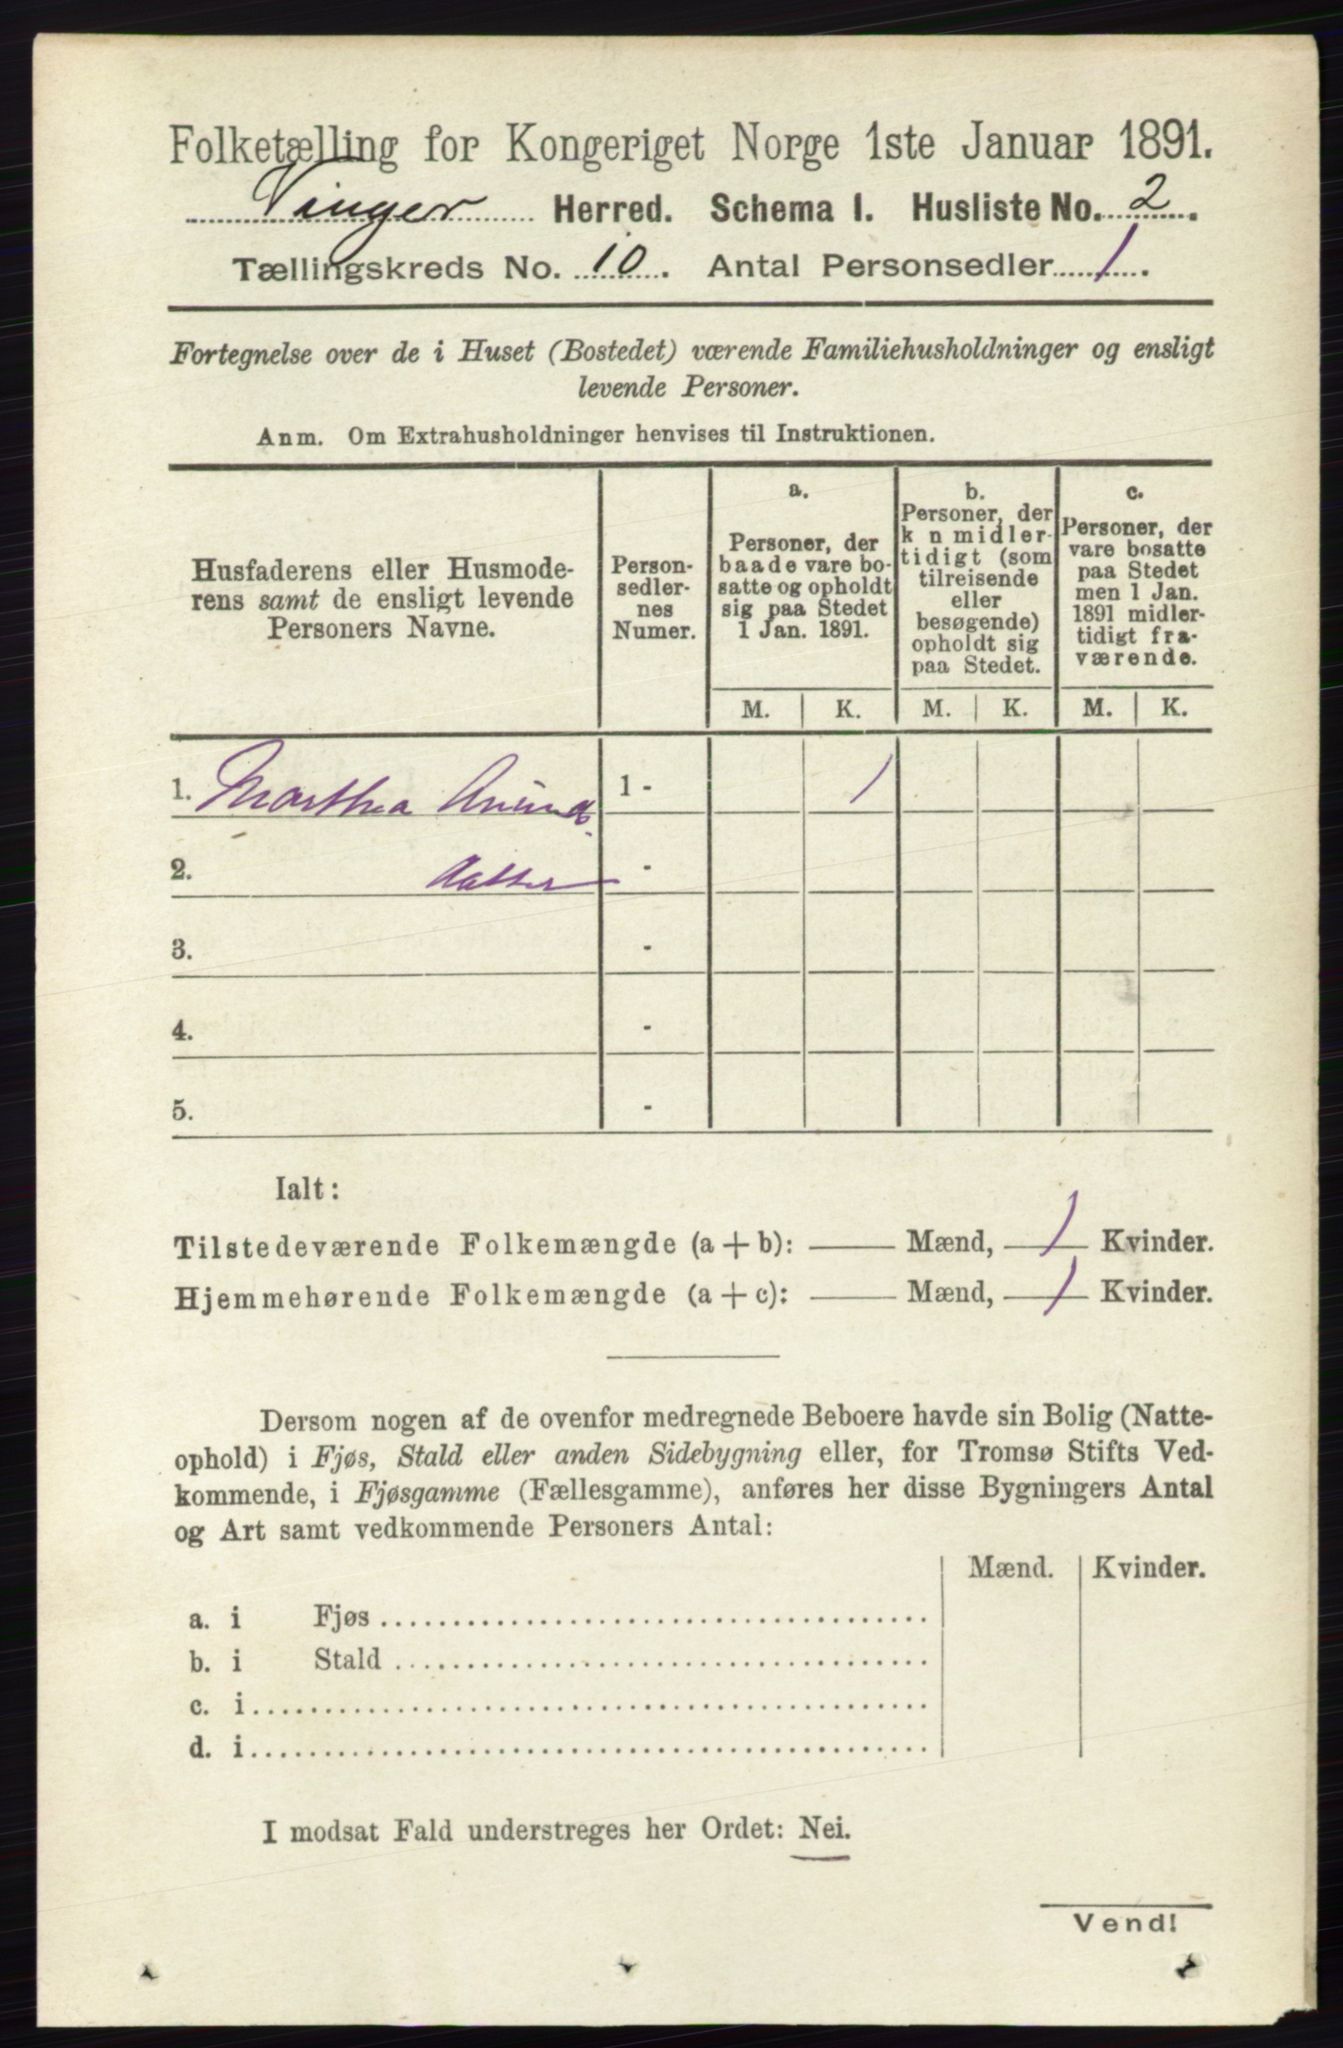 Folketælling for Kongeriget Norge 1ste Januar 1891.
Vinger Herred. Schema I. Husliste No. 2.
Tællingskreds No. 10. Antal Personsedler 1.
Fortegnelse over de i Huset (Bostedet) værende Familiehusholdninger og ensligt
levende Personer.
Anm. Om Extrahusholdninger henvises til Instruktionen.
Husfaderens eller Husmode-
rens samt de ensligt levende
Personers Navne.
Person-
sedler-
nes
Numer.
a.
Personer, der
baade vare bo-
satte og opholdt
sig paa Stedet
1 Jan. 1891.
b.
Personer, der
k n midler-
tidigt (som
tilreisende
eller
besøgende)
opholdt sig
paa Stedet.
c.
Personer, der
vare bosatte
paa Stedet
men 1 Jan.
1891 midler-
tidigt fra-
værende.
M. K. M. K. M. K.
1. Marthea 1 - 1
2. datter -
3. -
4. -
5. -
Ialt:
Tilstedeværende Folkemængde (a + b): — Mænd, 1 Kvinder.
Hjemmehørende Folkemængde (a + c): — Mænd, 1 Kvinder.
Dersom nogen af de ovenfor medregnede Beboere havde sin Bolig (Natte-
ophold) i Fjøs, Stald eller anden Sidebygning eller, for Tromsø Stifts Ved-
kommende, i Fjøsgamme (Fællesgamme), anføres her disse Bygningers Antal
og Art samt vedkommende Personers Antal:
Mænd. Kvinder.
a. i Fjøs
b. i Stald
c. i
d. i
I modsat Fald understreges her Ordet: Nei.
Vend!